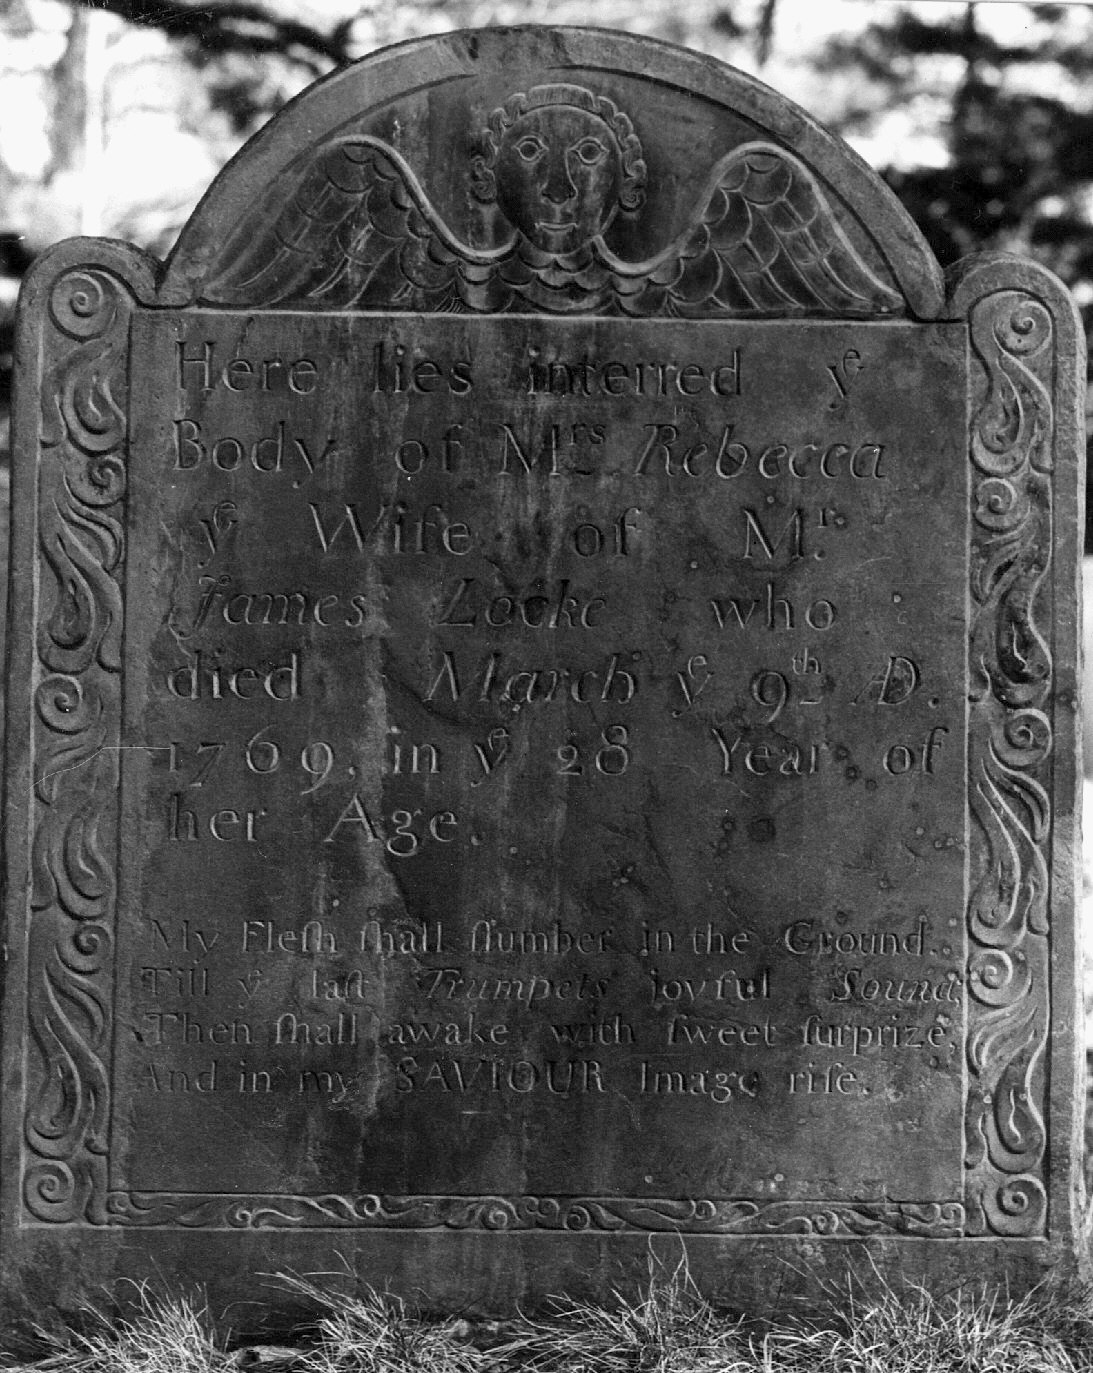 Here lies interred yᵉ
Body of Mʳˢ Rebecca
yᵉ Wife of Mʳ.
James Locke who
died March yᵉ 9ᵗʰ AD.
1769. in yᵉ 28 Year of
her Age.
My Fleſh ſhall ſlumber in the Ground.
Till yᵉ laſt Trumpets joyful Sound.
Then ſhall awake with ſweet ſurprize,
And in my SAVIOUR Image riſe.